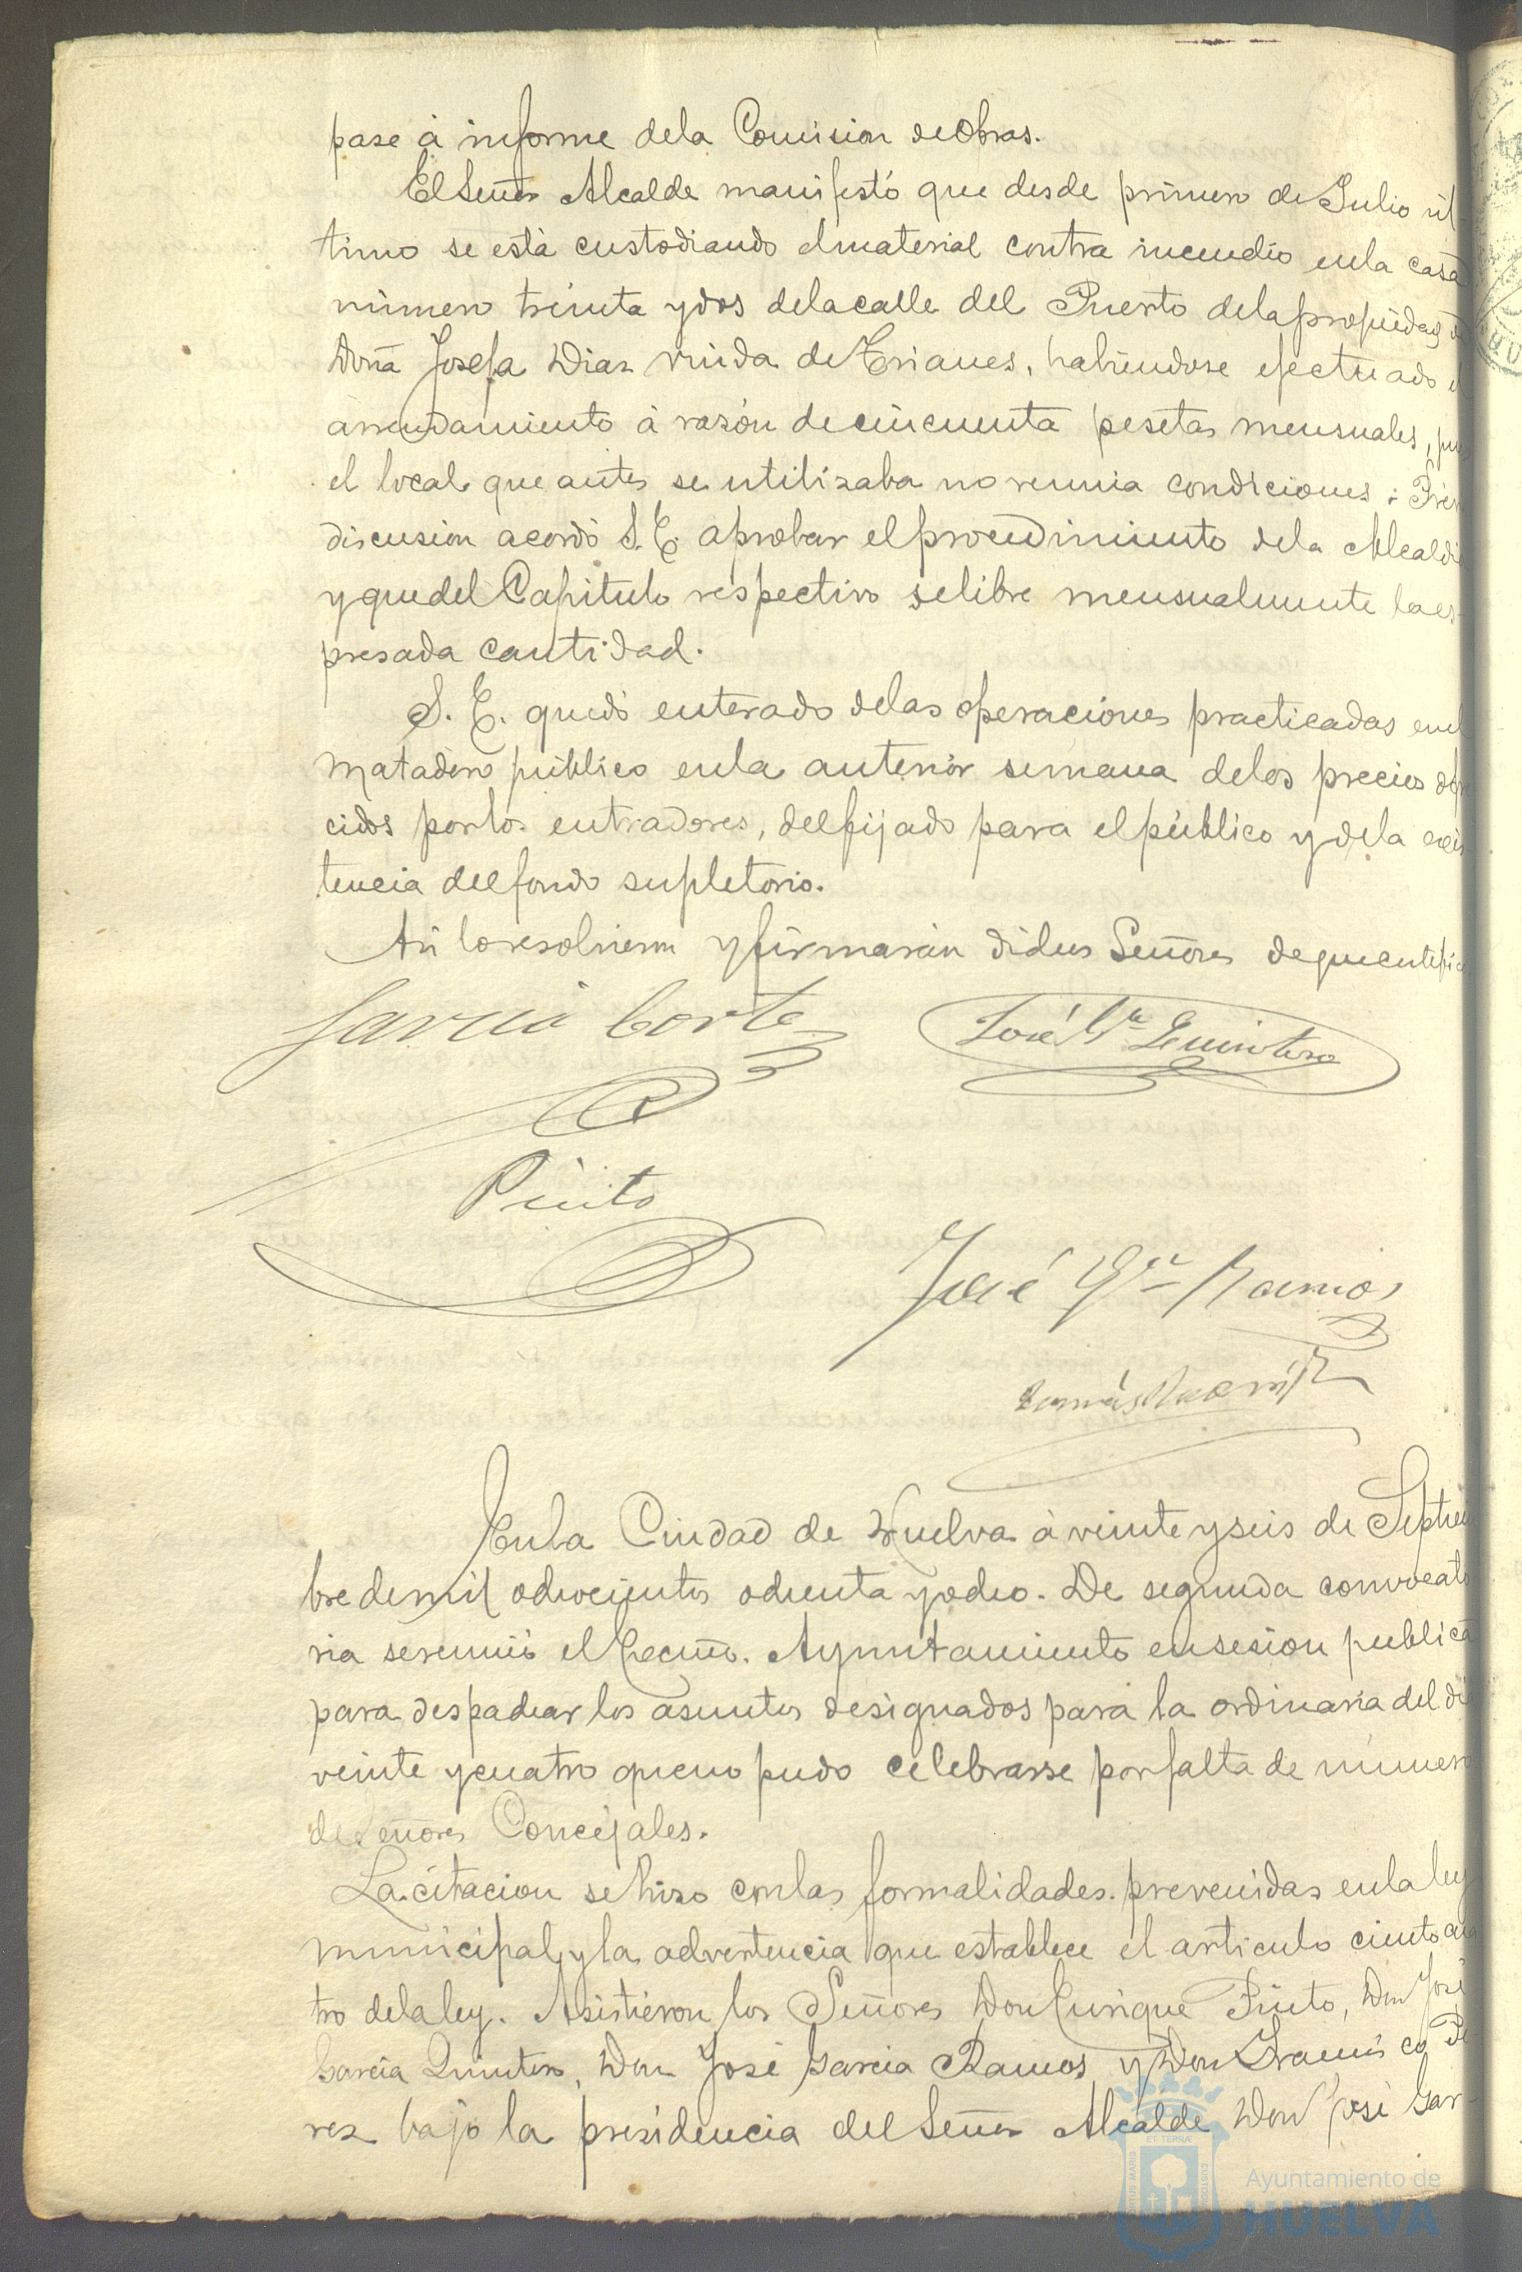 pase á informe de la Comision de Obras.
El Señor Alcalde manifestó que desde primero de Julio úl-
timo se está custodiando el material contra incendio en la casa
número treinta y dos de la calle del Puerto de la propiedad
Doña Josefa Diaz viuda de Trianes, habiendose efectuado el
arrendamiento á razón de cincuenta pesetas mensuales, pues
el local que antes se utilizaba no reunia condiciones;
discusion acordó S. E. aprobar el procedimiento de la Alcaldi
y que del Capitulo respectivo se libre mensualmente la es-
presada cantidad.
S. E. quedó enterado de las operaciones practicadas en el
Matadero público en la anterior semana de los precios
cidos por los entradores, del fijado para el público y de la exis
tencia del fondo supletorio.
Asi lo resolvieron y firmarán dichos Señores de que certifico
Garcia Cortes
José Gª Quintero
Pinto
José Gª Ramos
Tomás
En la Ciudad de Huelva á veinte y seis de Septiem
bre de mil ochocientos ochenta y ocho. De segunda convocato
ria se reunió el Excmo. Ayuntamiento en sesion publica
para despachar los asuntos designados para la ordinaria del di
veinte y cuatro que no pudo celebrarse por falta de numero
de Señores Concejales.
La citacion se hizo con las formalidades prevenidas en la ley
municipal y la advertencia que establece el articulo ciento cua
tro de la ley. Asistieron los Señores Don Enrique Pinto, Don José
Garcia Quintero, Don José Garcia Ramos y Don Francisco Pe-
rez bajo la presidencia del Señor Alcalde Don José Gar-
Ayuntamiento de
HUELVA